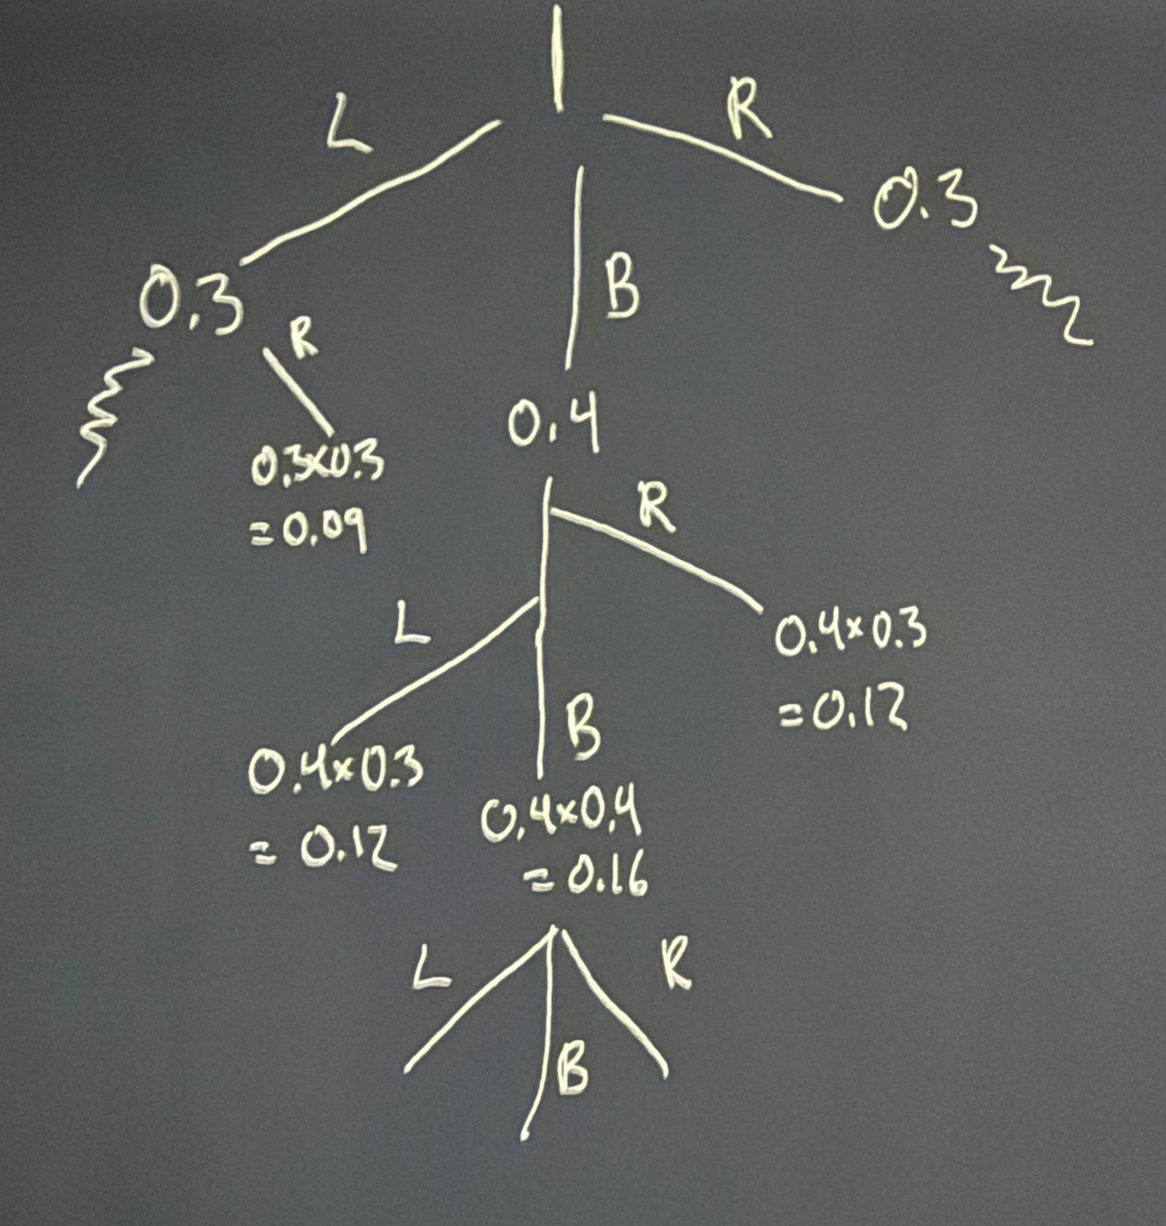 L
R
0.3
B
0.3
R
0.4
0.3×0.3
=0.09
R
L
0.4×0.3
=0.12
B
0.4×0.3
= 0.12
0.4×0.4
=0.16
L
R
B